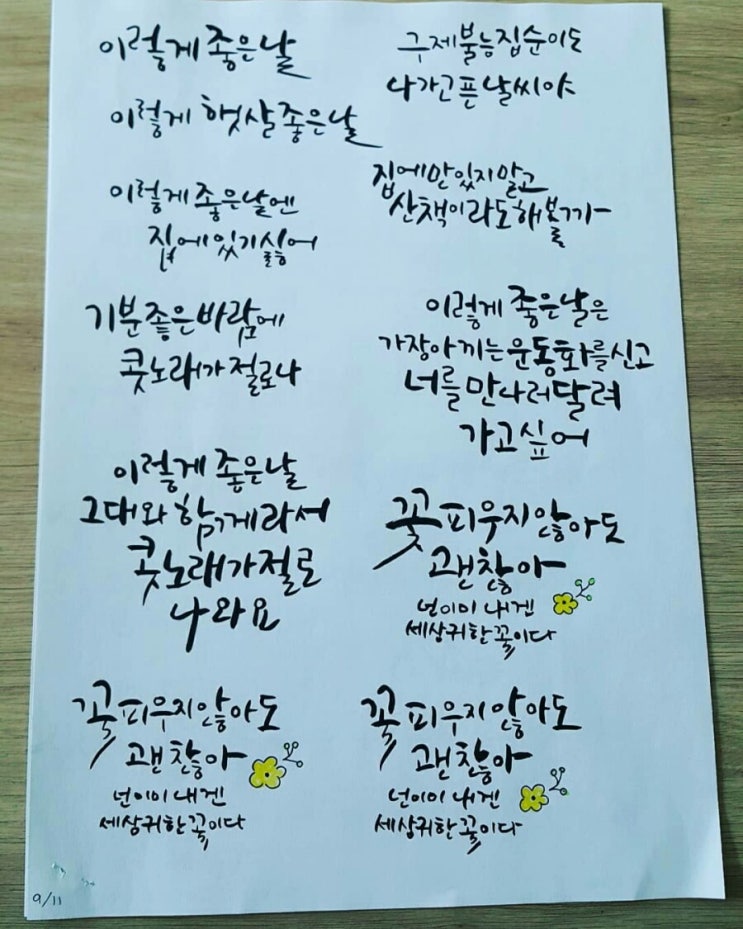 이렇게 좋은날
이렇게 햇살 좋은날
이렇게 좋은날엔
집에 있기 싫어
기분좋은바람에
콧노래가 절로나
이렇게 좋은날
그대와 함께라서
콧노래가절로
나와요
꽃피우지않아도
괜찮아
넌이미 내겐
세상귀한꽃이다
구제불능집순이도
나가고픈날씨야
집에만있지말고
산책이라도해볼까
이렇게 좋은날은
가장아끼는운동화를신고
너를만나러달려
가고싶어
꽃피우지않아도
괜찮아
넌이미 내겐
세상귀한꽃이다
꽃피우지않아도
괜찮아
넌이미 내겐
세상귀한꽃이다
9/11